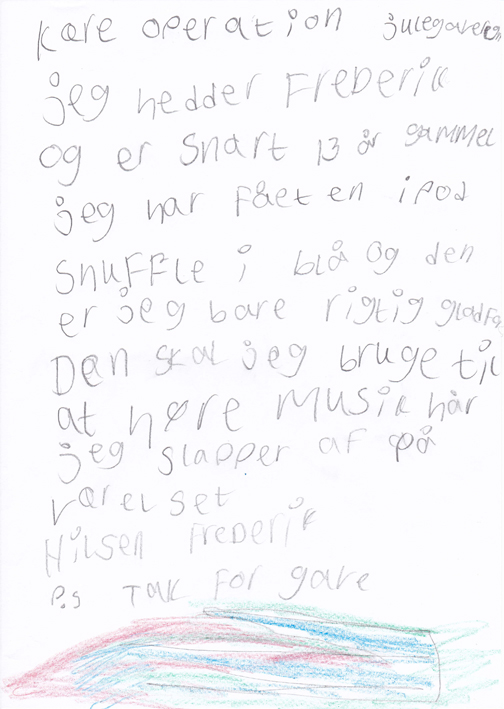 Kære operation julegaveregn
jeg hedder Frederik
og er snart 13 år gammel
jeg har Fået en ipod
snuffle i blå og den
er jeg bare rigtig glad for
Den skal jeg bruge til
at høre musik når
jeg slapper af på
værelset
Hilsen Frederik
P.s Tak For gave